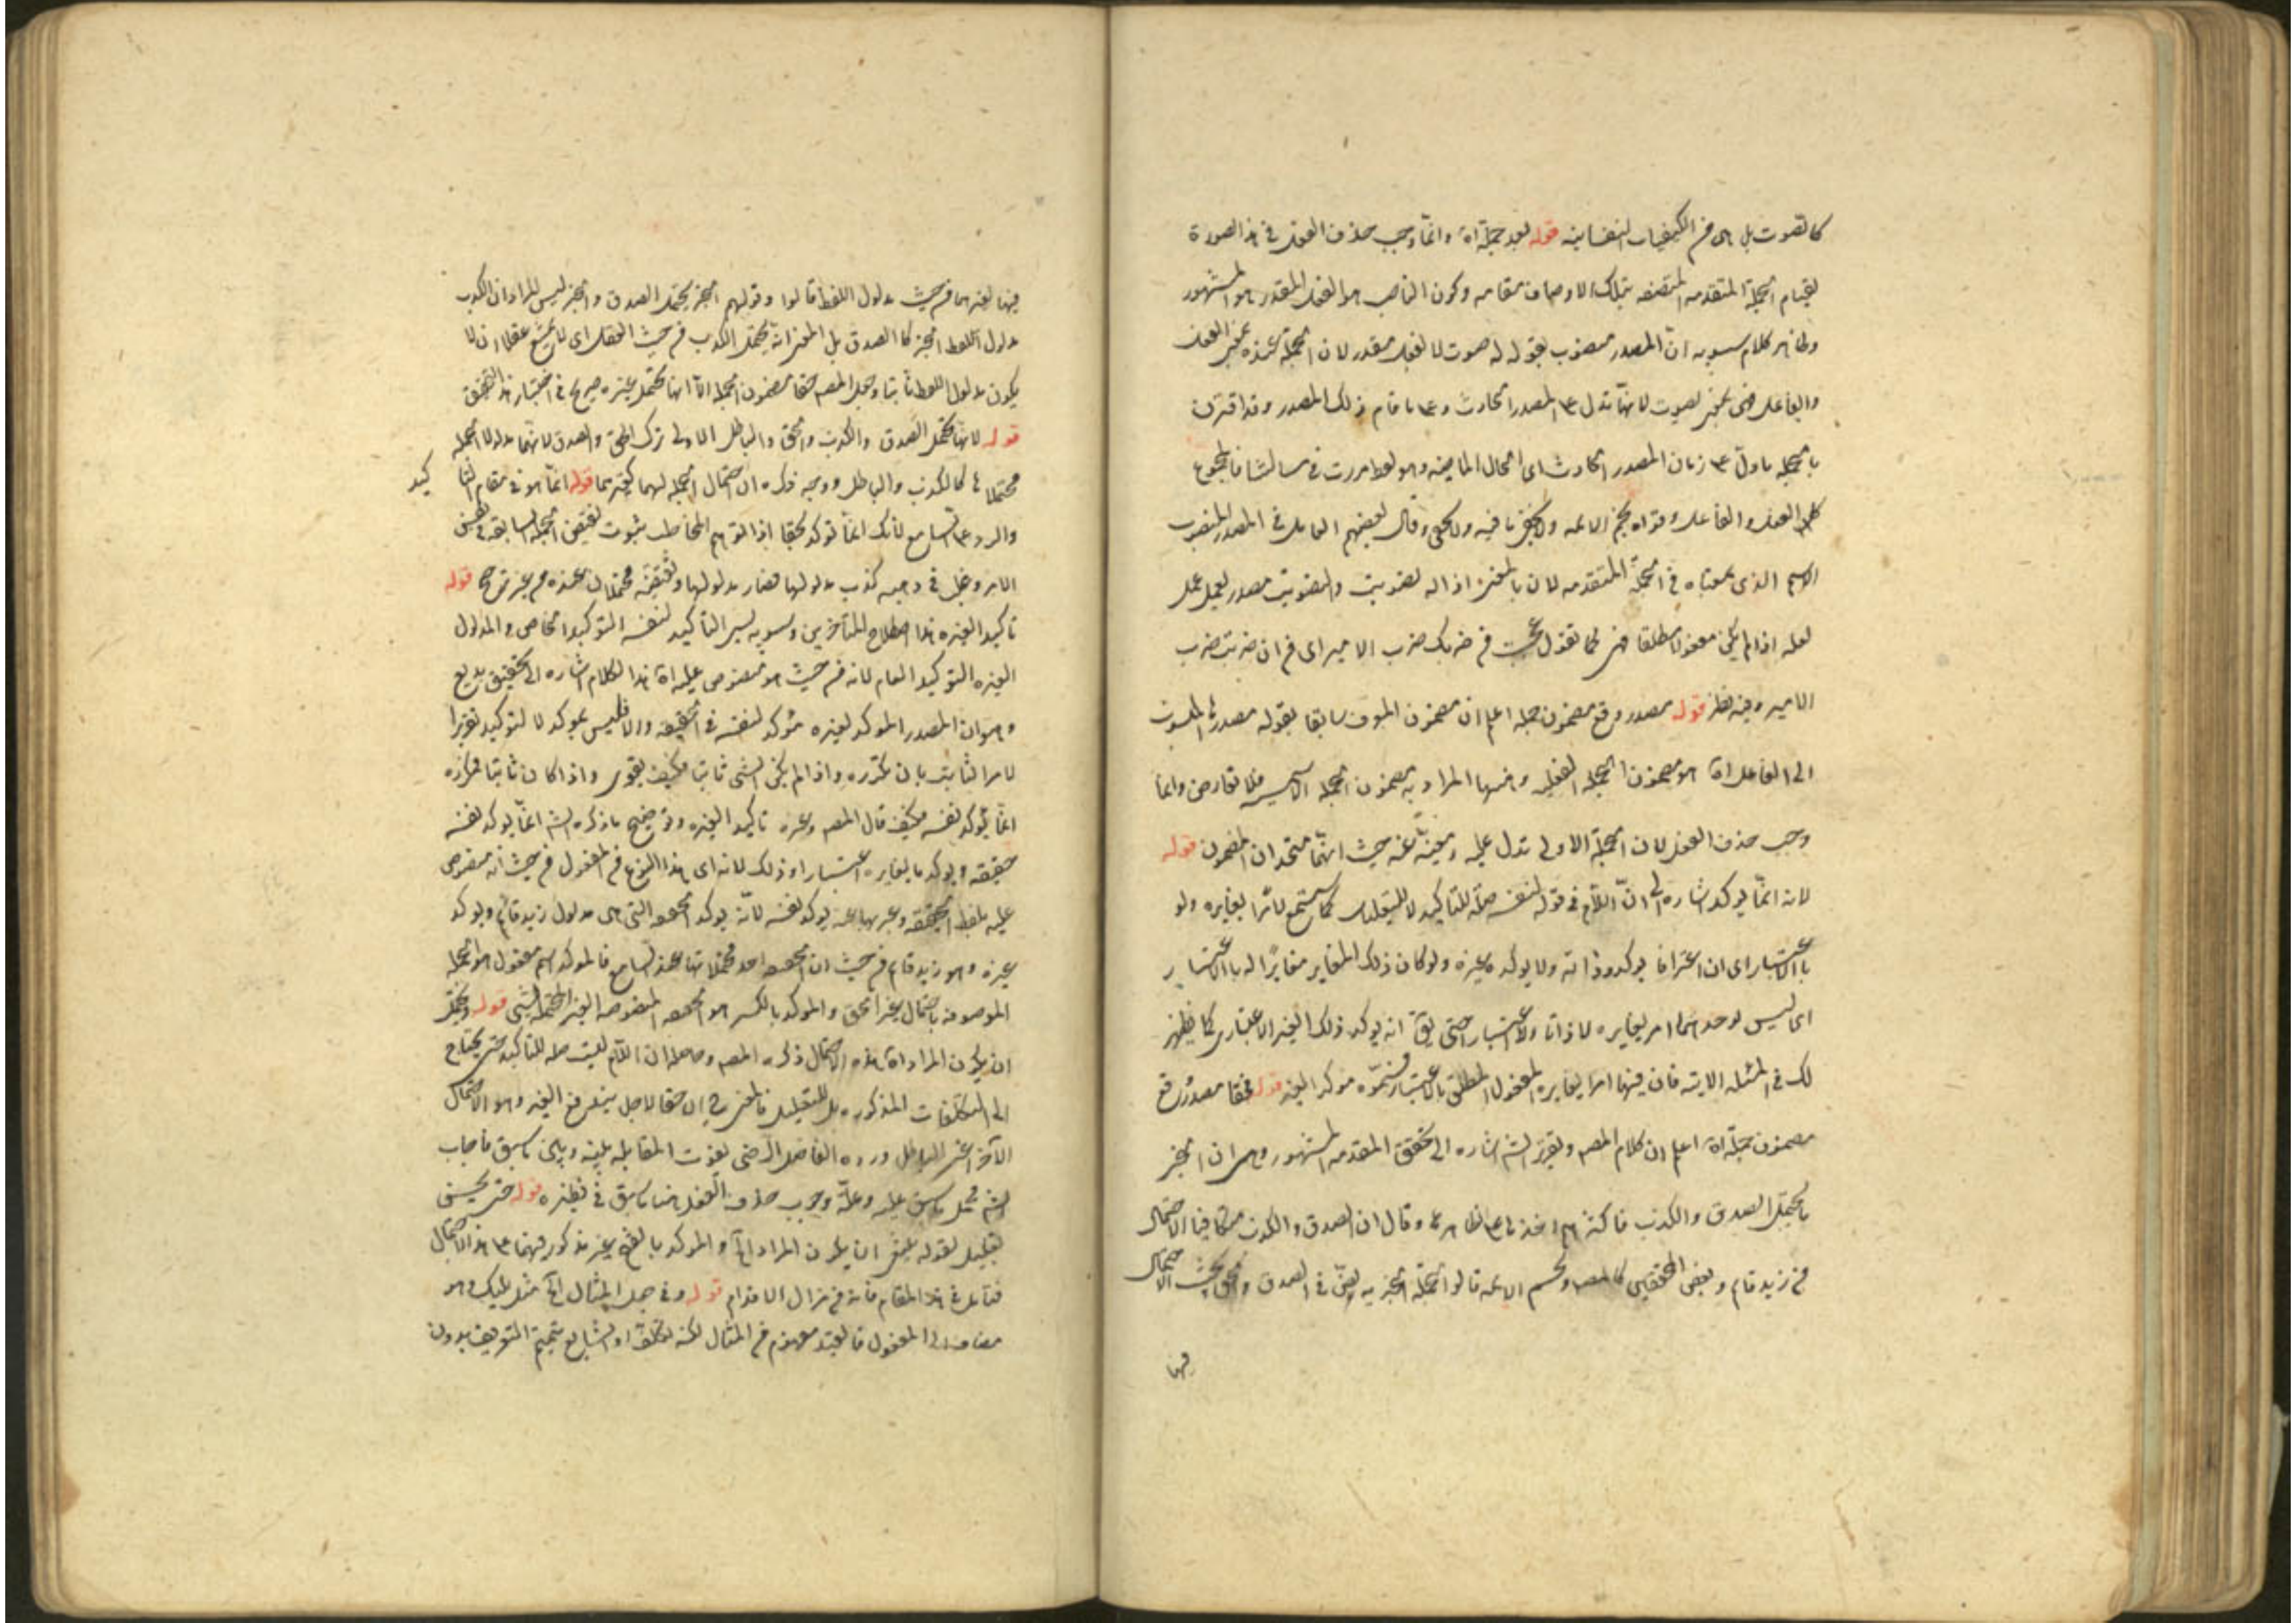 كالصوت بل هى من الكيفيات النفسانيه قوله بعد جملة اه وانما وجب حذف الفعل فى هذا الصورة
لقيام الجملة المتقدمه المتضمنه بتلك الاوصاف مقامه وكون الناصب هو الفعل المقدر هو المشهور
وظاهر كلام سيبويه ان المصدر منصوب بقوله له صوت لا بفعل مقدر لان الجملة عنده بمعنى الفعل
والفاعل فهى بمعنى يصوت لانها تدل على المصدر الحادث وعلى ما قام ذلك المصدر وقد اقترن
بالجمله ما دل على زمان المصدر الحادث اى الحال الماضيه وهو لفظ مررت فى مسالتنا فالمجموع
الفعل والفاعل وقواه نجم الائمه وقال بعضهم العامل فى المصدر المنصوب
الاسم الذى بمعناه فى الجملة المتقدمه لان المعنى اذا له تصويت والتصويت مصدر يعمل عمل
فعله اذا لم يكن مفعولا مطلقا كما تقول عجبت من ضربك ضرب الامير اى من ان ضربت ضرب
الامير وفيه نظر قوله مصدر وقع مضمون جمله اعلم ان مضمون سابقا بقوله مصدرها المنسوب
الى الفاعل اه هو مضمون الجملة الفعليه وههنا المراد به مضمون الجملة الاسميه فلا تعارض وانما
وجب حذف الفعل لان الجملة الاولى تدل عليه ومغنيه عنه حيث انهما متحدان المضمون قوله
لانه انما يوكد اشاره الى ان اللام فى قوله لنفسه صلة للتاكيد لا للتعليل كما سيجئ لا امرا يغايره ولو
بالاعتبار اى ان اعترافا يوكد وذاته ولا يوكد غيره ولو كان ذلك المغاير مغايرًا له بالاعتبار
اى ليس لوحد امر يغايره لا ذاتا ولا اعتبارا حتى يق انه يوكد ذلك الغير الاعتبارى كما يظهر
لك فى المثله الاتيه فان فيها امرا يغايره المفعول المطلق بالاعتبار موكد الغيره قوله فحقا مصدر وقع
مضمون جملة اه اعلم ان كلام المصه وتقرير الشه اشاره الى تحقق المقدمه المشهور وهى ان الخبر
ما يحتمل الصدق والكذب فاكثرهم اخذها على ظاهرها وقال ان الصدق والكذب متكافيا الاحتمال
فى زيد قام وبعض المحققين كالمصه ونجم الائمه قالوا الجملة الخبريه نص فى الصدق والحق بحيث الاحتمال
فيها
فيها لغيرهما من حيث مدلول اللفظ قالوا وقولهم الخبر يحتمل الصدق والخبر ليس المراد ان الكذب
مدلول اللفظ الخبر كالصدق بل المعنى انه يحتمل الكذب من حيث العقل اى لا يمتنع عقلا ان لا
يكون مدلول اللفظ ثابتا وجعل المصه حقا مضمون الجملة الا انها تحتمل غيره صريح فى اختيار هذا التحقق
قوله لانها تحتمل الصدق والكذب والحق والباطل الاولى ترك الحق والصدق لانهما مدلولا الجمله
محتملاها كالكذب والباطل ووجه ذكره ان احتمال الجمله لهما كغيرهما قوله انما هو فى مقام التا كيد
والرد على السامع لانك انما توكد بحقا اذا توهم المخاطب ثبوت نقيض الجمله السابقه فى نفس
الامر وغلب فى وهمه كذب مدلولها فصار مدلولها ونقيضه محتملان عنده من غير ترجيح قوله
تاكيدا لغيره هذا اصطلاح المتاخرين وسيبويه يسمى التاكيد لنفسه التوكيد الخاص والمدلول
لغيره التوكيد العام لانه من حيث هو منصوص عليه اه هذا الكلام اشاره الى تحقيق بديع
وهو ان المصدر الموكد لغيره مؤكد لنفسه فى الحقيقه والا فليس بموكد لا لتوكيد تقريرا
لامر الثابت بان تكرره واذا لم يكن الشى ثابتا فكيف يقوى واذا كان ثابتا فمكرره
انما يوكد نفسه فكيف قال المصه وغيره تاكيد لغيره وتوضيح ما ذكره الشه انما يوكد نفسه
حقيقه ويوكد ما يغايره اعتبارا وذلك لانه اى هذا النوع من المفعول من حيث انه منصوص
عليه بلفظ الحقيقه وغيرها يوكد نفسه لانه يوكد الحق التى هى مدلول زيد قائم ويوكد
غيره وهو زيد قام من حيث ان الحق احد محتملاتها عند السامع فالموكد اسم مفعول هو الجمله
الموصوفه باحتمال غير الحق والموكد بالكسر هو الحق المنصوصه الغير المحتمله لشى قوله ويحتمل
ان يكون المراد اه هذه الاحتمال ذكره المصه وحاصله ان اللام ليست صله للتاكيد حتى يحتاج
الى التكلفات المذكوره بل للتعليل فالمعنى ح ان حقا لاجل الغير وهو الاحتمال
الاخر اعنى الباطل ورده الفاضل الرضى لفوت المقابله بينه وبين ما سبق فاجاب
الشه بحمل ما سبق عليه وعلة وجوب حذف الفعل هنا ما سبق فى نظيره قوله حتى يحسن
تعليل لقوله ينبغى ان يكون المراد اه والموكد بالفتح غير مذكور فيهما على هذا الاحتمال
فتامل فى هذا المقام فانه من مزال الاقدام قوله وفى جعل المثال اه مثل لبيك وهو
مضاف الى المفعول فالقيد مفهوم من المثال لكنه تكلف اولا لتتميم التعريف بدون